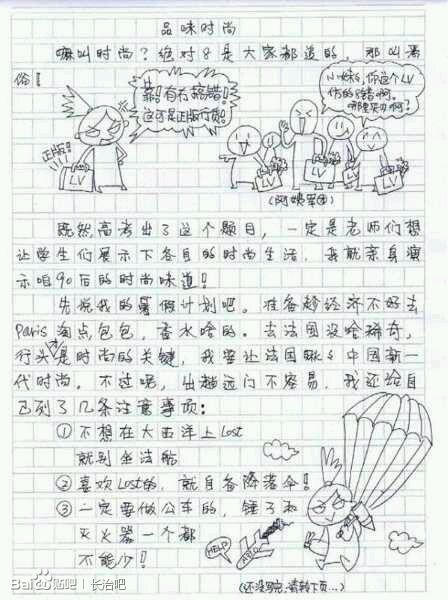 品味时尚
嘛叫时尚？绝对8是大家都道的，那叫落
俗！
靠！有冇搞错！
这可是正版行货！
正版！
LV
N妹纟，你这个LV
仿的8错啊。
哪里买的啊？
LV
LV
LV
LV
(阿姨军团)
既然高考出了这个题目，一定是老师们想
让学生们展示下各自的时尚生活，我就亲身演
示咱90后的时尚味道！
先说我的暑假计划吧。准备趁经济不好去
Paris淘点包包，香水啥的。去法国没啥稀奇，
行头是时尚的关键，我要让法国瞅纟中国新一
代时尚。不过呢，出趟远门不容易，我还给自
己列了几条注意事项：
①不想在大西洋上Lost
就别坐法航
②喜欢Lost的，就自备降落伞！
③一定要做公车的，锤子和
灭火器一个都
不能少！
HELP
A330
(还没写完，请转下页…)
Baidu贴吧 | 长治吧